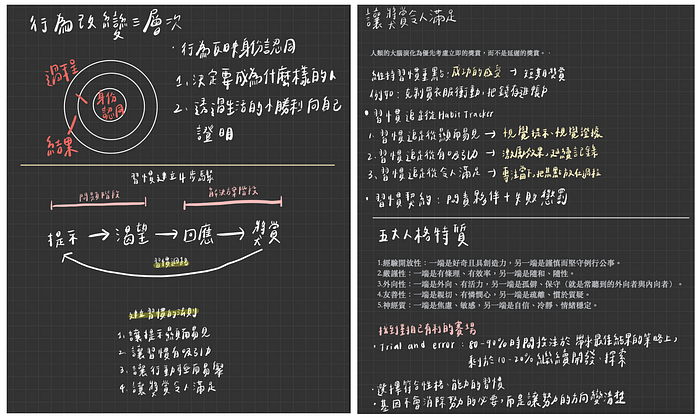 行為改變三層次
過程
身份認同
結果
・行為即身份認同
1. 決定要成為什麼樣的人
2. 透過生活的小勝利向自己
證明
習慣建立4步驟
問題階段
解決方案階段
提示 → 渴望 → 回應 → 獎賞
習慣迴路
建立習慣的法則
1. 讓提示顯而易見
2. 讓習慣有吸引力
3. 讓行動輕而易舉
4. 讓獎賞令人滿足
讓獎賞令人滿足
人類的大腦演化為優先考慮立即的獎賞，而不是延遲的獎賞。.
維持習慣重點：成功的感受 → 短期獎賞
例如：克制買衣服衝動，把錢存進帳戶
習慣追蹤 Habit Tracker
1. 習慣追蹤從顯而易見 → 視覺提示、視覺證據
2. 習慣追蹤從有吸引力 → 激勵效果，延續記錄
3. 習慣追蹤從令人滿足 → 專注當下，把焦點放在過程
・習慣契約：問責夥伴 + 失敗懲罰
五大人格特質
1.經驗開放性：一端是好奇且具創造力，另一端是謹慎而堅守例行公事。
2.嚴謹性：一端是有條理、有效率，另一端是隨和、隨性。
3.外向性：一端是外向、有活力，另一端是孤僻、保守（就是常聽到的外向者與內向者）。
4.友善性：一端是親切、有憐憫心，另一端是疏離、慣於質疑。
5.神經質：一端是焦慮、敏感，另一端是自信、冷靜、情緒穩定。
找到對自己有利的賽場
・Trial and error：80-90% 時間投注於帶來最佳結果的策略上，
剩於 10-20% 繼續開發、探索
・選擇符合性格、能力的習慣
・基因不會消除努力的必要，而是讓努力的方向變清楚